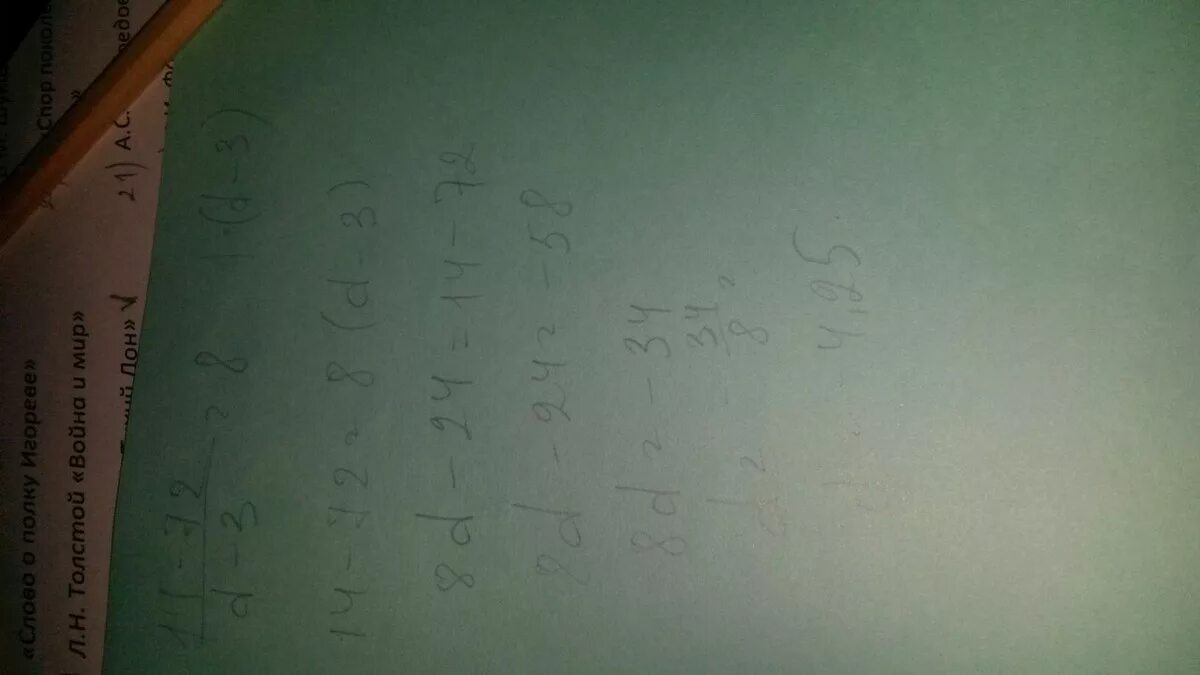 «Слово о полку Игореве»
Л.Н. Толстой «Война и мир»
Дон» V
21) А.С.
«Спор
(14-72)/(d-3) = 8 | · (d-3)
14-72 = 8 (d-3)
8d-24=14-72
8d-24=-58
8d = -34
d = -34/8 =
4,25